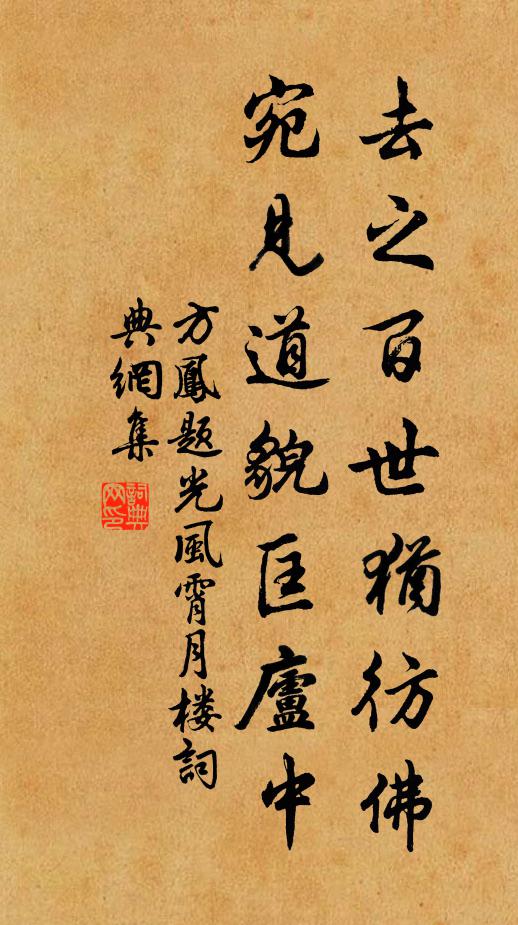 去之百世猶彷佛
宛見道貌匡廬中
方鳳題光風霄月楼詞
典網集
詞典
网印